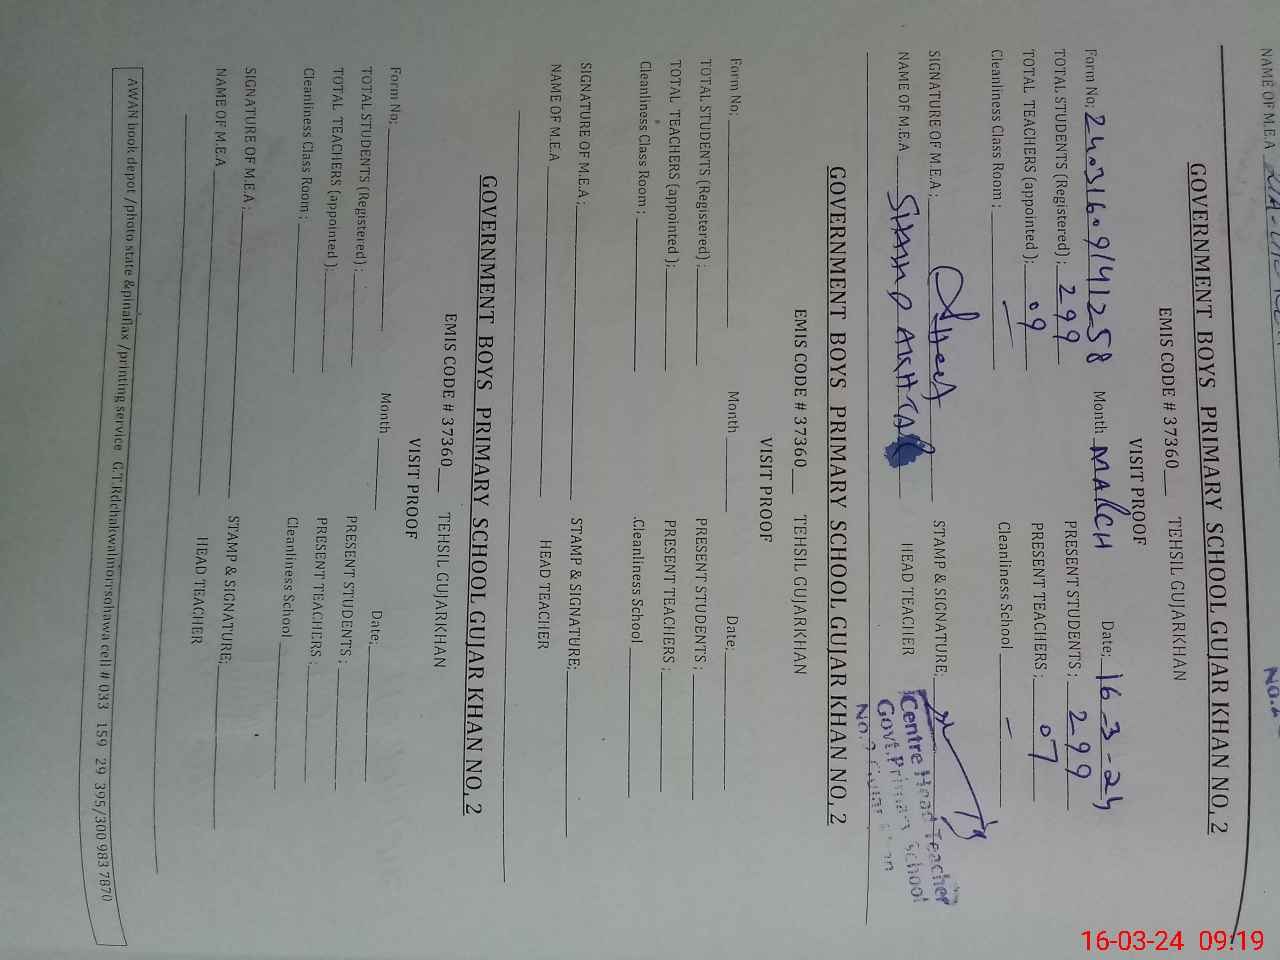 NAME OF M.E.A
NO.2
GOVERNMENT BOYS PRIMARY SCHOOL GUJAR KHAN NO, 2
EMIS CODE # 37360__ TEHSIL GUJARKHAN
VISIT PROOF
Form No; 24031609141258 Month MARCH Date; 16-3-24
TOTAL STUDENTS (Registered) ; 299 PRESENT STUDENTS ; 299
TOTAL TEACHERS (appointed ); 09 PRESENT TEACHERS ; 07
Cleanliness Class Room ; — Cleanliness School —
SIGNATURE OF M.E.A ; STAMP & SIGNATURE;
NAME OF M.E.A HEAD TEACHER
Centre Head Teacher
Govt. Primary School
No. 2 Gujar Khan
GOVERNMENT BOYS PRIMARY SCHOOL GUJAR KHAN NO, 2
EMIS CODE # 37360__ TEHSIL GUJARKHAN
VISIT PROOF
Form No; Month Date;
TOTAL STUDENTS (Registered) ; PRESENT STUDENTS ;
TOTAL TEACHERS (appointed ); PRESENT TEACHERS ;
Cleanliness Class Room ; .Cleanliness School
SIGNATURE OF M.E.A ; STAMP & SIGNATURE;
NAME OF M.E.A HEAD TEACHER
GOVERNMENT BOYS PRIMARY SCHOOL GUJAR KHAN NO, 2
EMIS CODE # 37360__ TEHSIL GUJARKHAN
VISIT PROOF
Form No; Month Date;
TOTAL STUDENTS (Registered) ; PRESENT STUDENTS ;
TOTAL TEACHERS (appointed ); PRESENT TEACHERS ;
Cleanliness Class Room ; Cleanliness School
SIGNATURE OF M.E.A ; STAMP & SIGNATURE;
NAME OF M.E.A HEAD TEACHER
AWAN book depot /photo state &pinaflax /printing service G.T.Rdchakwalmorrsohawa cell # 033 159 29 395/300 983 7870
16-03-24 09:19